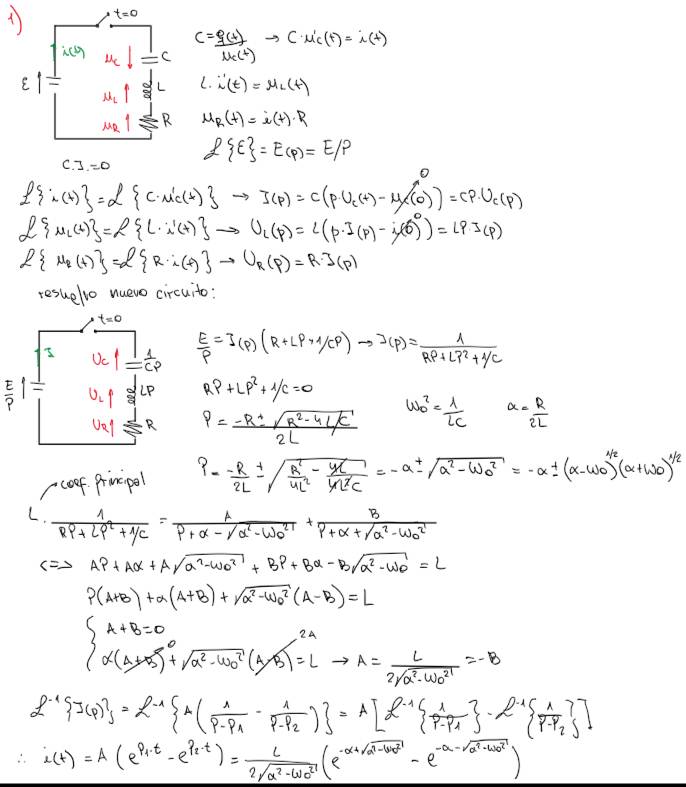 1)
t=0
i(t)
E
μc
C
μL
L
μR
R
C.I.=0
C = q(t)/μc(t) → C·μ'c(t) = i(t)
L·i'(t) = μL(t)
μR(t) = i(t)·R
ℒ{E} = E(p) = E/P
ℒ{i(t)} = ℒ{C·μ'c(t)} → I(p) = C(p·Uc(t) - μc(0)) = CP·Uc(p)
0
ℒ{μL(t)} = ℒ{L·i'(t)} → UL(p) = L(p·I(p) - i(0)) = LP·I(p)
0
ℒ{μR(t)} = ℒ{R·i(t)} → UR(p) = R·I(p)
resuelvo nuevo circuito:
t=0
I
E/P
Uc
1/CP
UL
LP
UR
R
E/P = I(p)(R+LP+1/CP) → I(p) = 1/(RP+LP²+1/C)
RP+LP²+1/C=0
P = (-R±√(R²-4L/C))/2L
ω0² = 1/LC
α = R/2L
P = -R/2L ± √(R²/4L² - 4L/4L²C) = -α±√(α²-ω0²) = -α±(α-ω0)^1/2 (α+ω0)^1/2
coef. principal
L · 1/(RP+LP²+1/C) = A/(P+α-√(α²-ω0²)) + B/(P+α+√(α²-ω0²))
<=> AP+Aα+A√(α²-ω0²) + BP+Bα-B√(α²-ω0) = L
P(A+B)+α(A+B)+√(α²-ω0²)(A-B)=L
{ A+B=0
α(A+B)+√(α²-ω0²)(A-B)=L → A = L/(2√(α²-ω0²)) = -B
0
2A
ℒ⁻¹{I(p)} = ℒ⁻¹{A(1/(P-P1) - 1/(P-P2))} = A[ℒ⁻¹{1/(P-P1)} - ℒ⁻¹{1/(P-P2)}]
∴ i(t) = A(e^(P1·t) - e^(P2·t)) = L/(2√(α²-ω0²)) (e^(-α+√(α²-ω0²)) - e^(-α-√(α²-ω0²)))